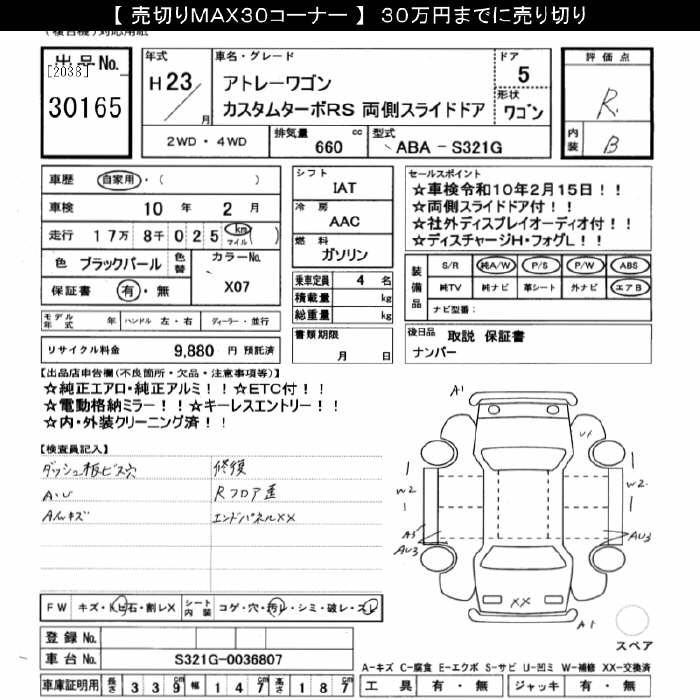 【 売切りMAX30コーナー 】 30万円までに売り切り
出品No.
[2038]
30165
年式
H23
月
車名・グレード
アトレーワゴン
カスタムターボRS 両側スライドドア
ドア
5
形状
ワゴン
評価点
R
内装
B
2WD・4WD
排気量
660 cc
型式
ABA-S321G
車歴 自家用・( )
車検 10年 2月
走行 17万 8千 025 km マイル ( )
色 ブラックパール
色替
カラーNo.
X07
保証書 有・無
シフト
IAT
冷房
AAC
燃料
ガソリン
乗車定員 4 名
積載量 kg
総重量 kg
書類期限
月 日
セールスポイント
☆車検令和10年2月15日!!
☆両側スライドドア付!!
☆社外ディスプレイオーディオ付!!
☆ディスチャージH・フォグL!!
装備品
S/R 純A/W P/S P/W ABS
純TV 純ナビ 革シート 外ナビ エアB
ナビ型番:
モデル年式 年 ハンドル 左・右 ディーラー・並行
リサイクル料金 9,880 円 預託済
後日品 取説 保証書
ナンバー
【出品店申告欄(不良箇所・欠品・注意事項等)】
☆純正エアロ・純正アルミ!!☆ETC付!!
☆電動格納ミラー!!☆キーレスエントリー!!
☆内・外装クリーニング済!!
【検査員記入】
ダッシュ板ビス穴
修復
A・U
Rフロア歪
AWキズ
エンドパネルXX
A1
U1
W2
W2
A3
AU3
AU3
XX
A1
スペア
FW キズ・トビ石・割レX
シート内装 コゲ・穴・汚レ・シミ・破レ・スレ
登録No.
車台No. S321G-0036807
A-キズ C-腐食 E-エクボ S-サビ U-凹ミ W-補修 XX-交換済
車庫証明用 長さ 339cm 幅 147cm 高さ 187cm
工具 有・無 ジャッキ 有・無